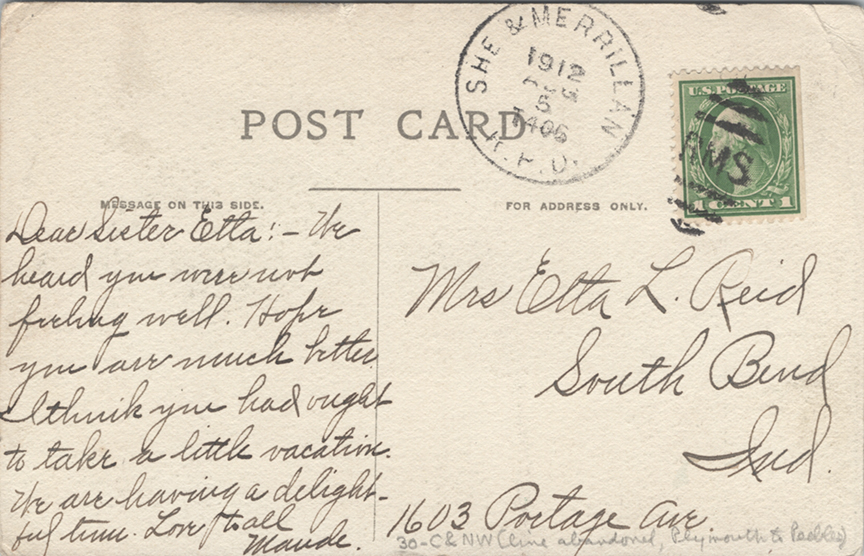 SHE & MERRILLAN
1912
5
1406
R.P.O.
U.S. POSTAGE
RMS
1 CENT 1
POST CARD
MESSAGE ON THIS SIDE.
FOR ADDRESS ONLY.
Dear Sister Etta:- We
heard you were not
feeling well. Hope
you are much better
I think you had ought
to take a little vacation.
We are having a delight-
ful time. Love to all
Maude.
Mrs Etta L. Reid
South Bend
Ind.
1603 Portage Ave.
30-C&NW (line abandoned, Plymouth to Peebles)